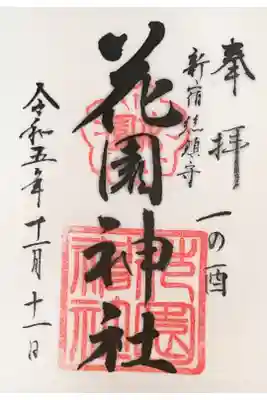 奉拝
一の酉
新宿総鎮守
花園神社
令和五年十一月十一日
花園神社